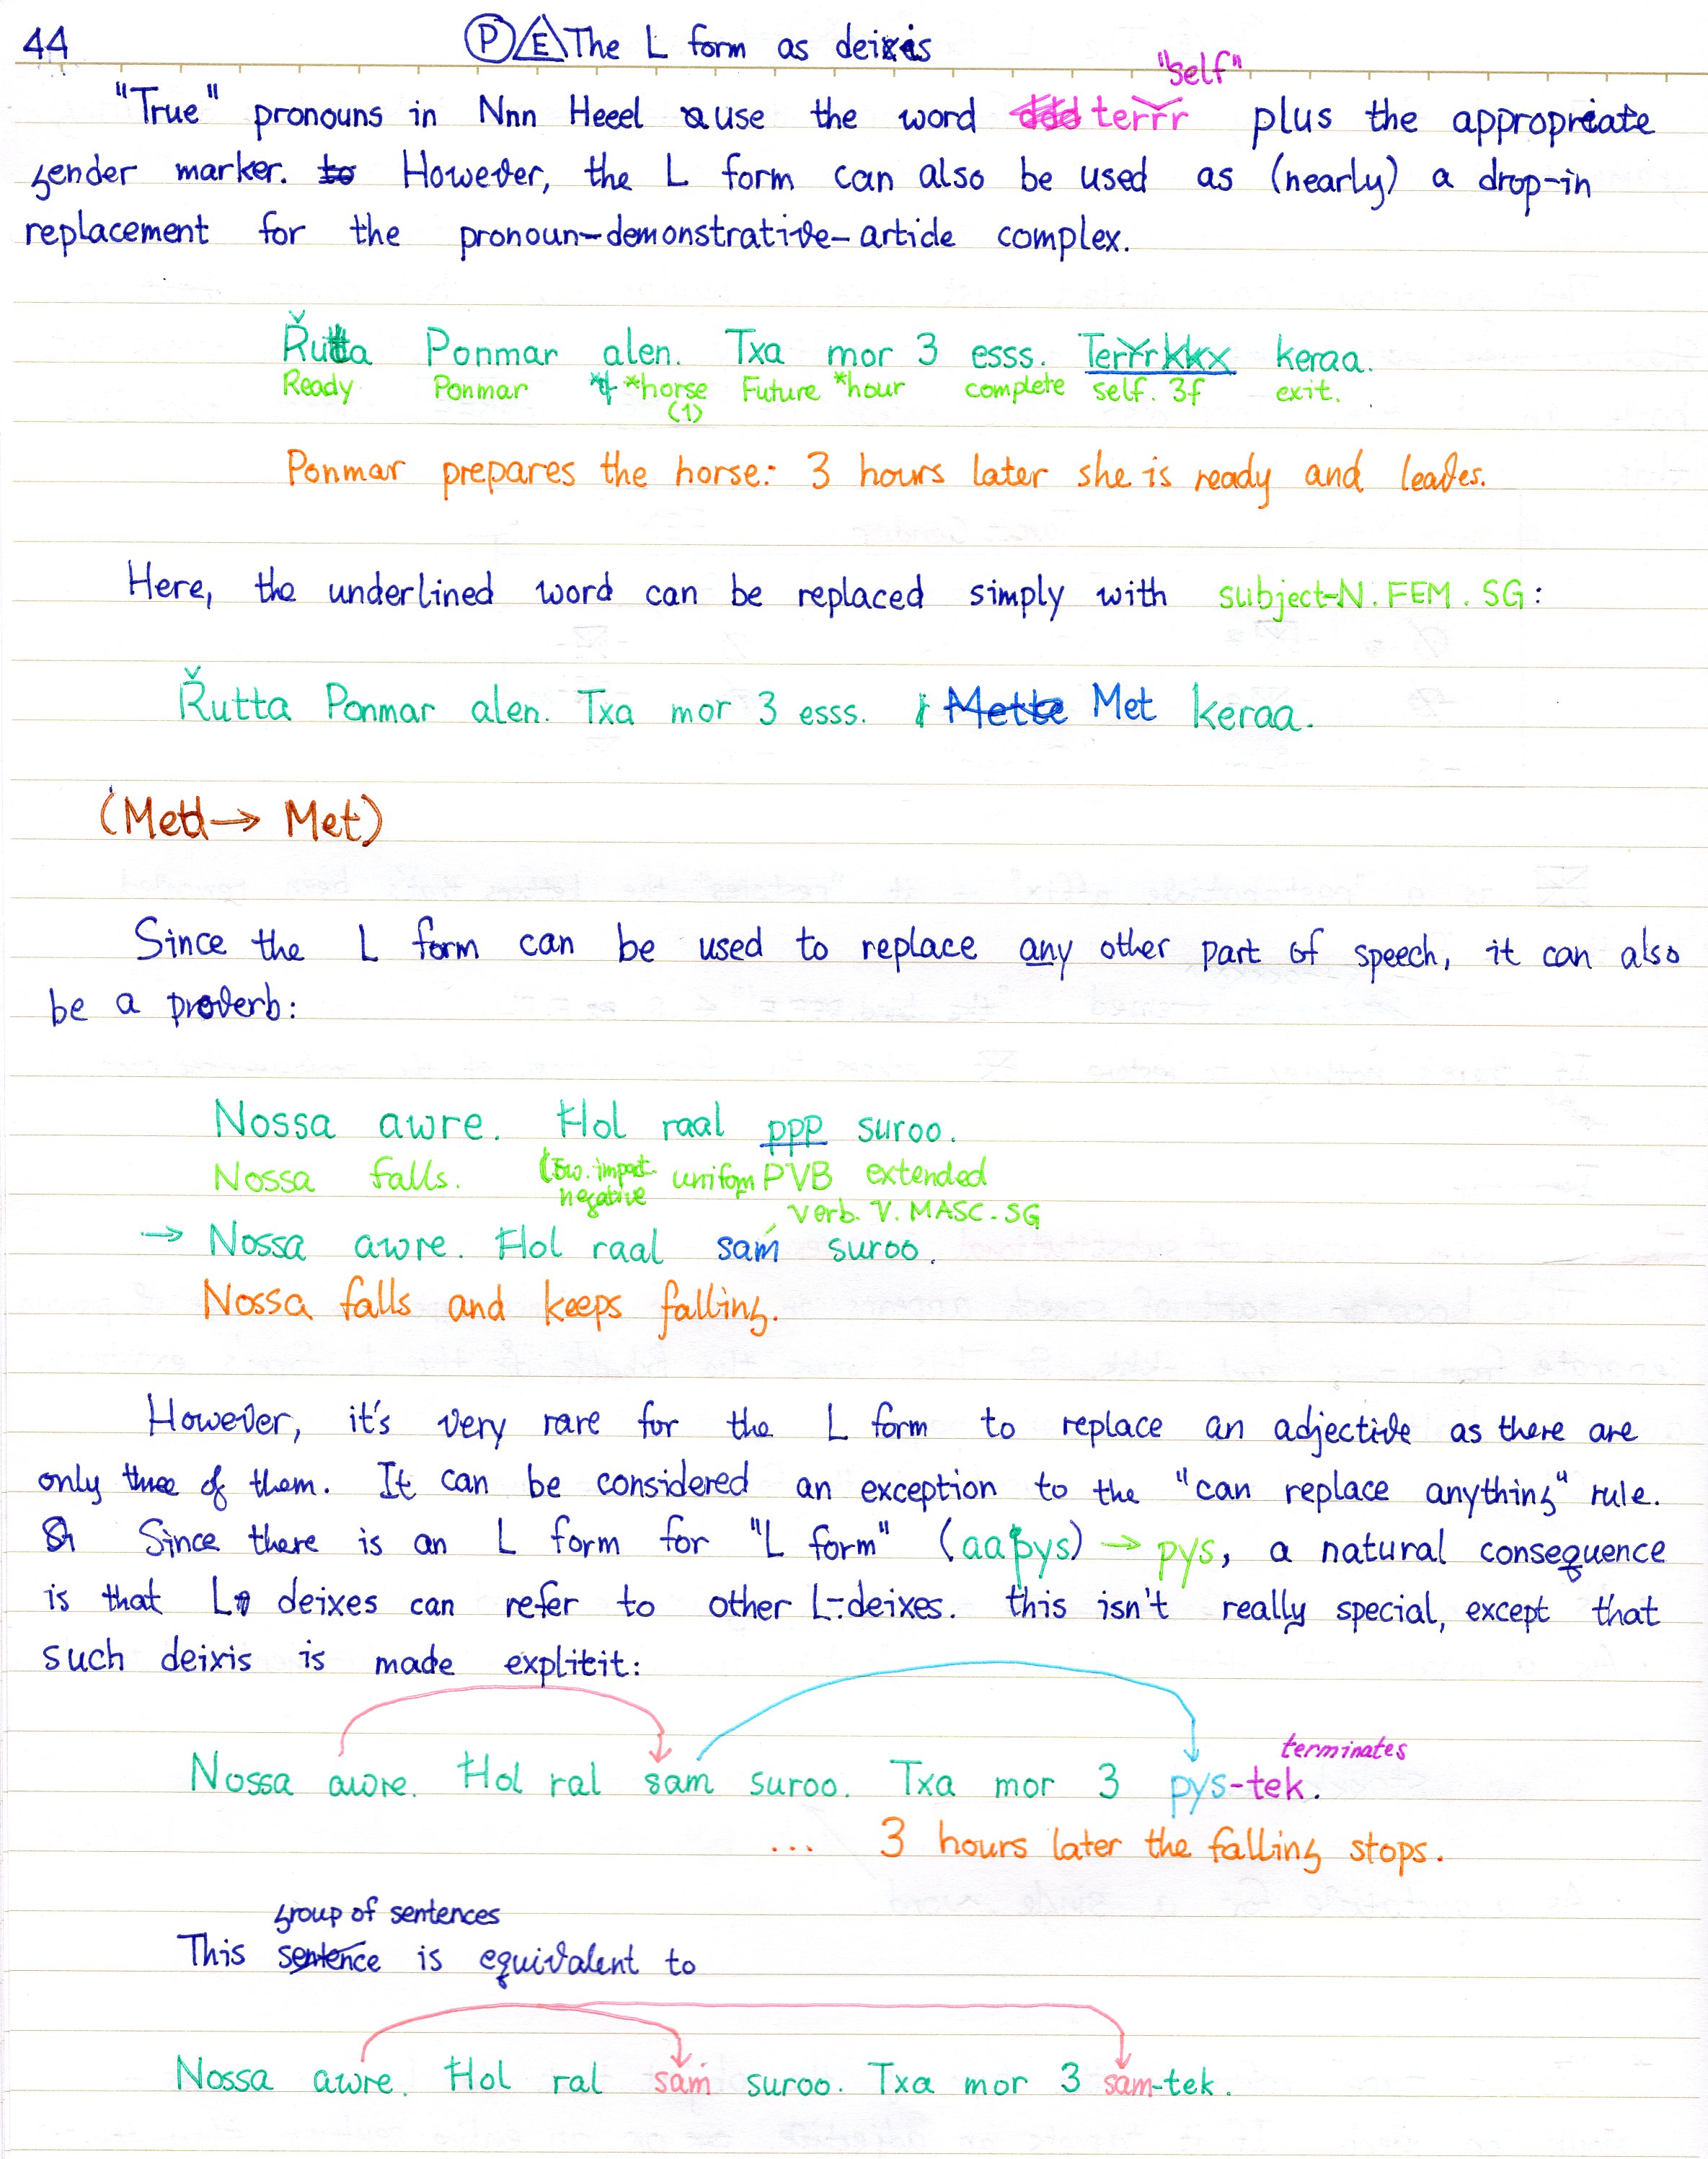 44
P E The L form as deixis
"self"
"True" pronouns in Nnn Heeel use the word terřr plus the appropriate
gender marker. However, the L form can also be used as (nearly) a drop-in
replacement for the pronoun-demonstrative-article complex.
Řutta Ponmar alen. Txa mor 3 esss. Terřrkkx keraa.
Ready Ponmar *horse Future *hour complete self. 3f exit.
(1)
Ponmar prepares the horse: 3 hours later she is ready and leaves.
Here, the underlined word can be replaced simply with subject-N.FEM.SG:
Řutta Ponmar alen. Txa mor 3 esss. Met keraa.
→ Met)
Since the L form can be used to replace any other part of speech, it can also
be a proverb:
Nossa awre. Ħol raal ppp suroo.
Nossa falls. uniform PVB extended
negative verb. V. MASC. SG
→ Nossa awre. Ħol raal sam suroo.
Nossa falls and keeps falling.
However, it's very rare for the L form to replace an adjective as there are
only three of them. It can be considered an exception to the "can replace anything" rule.
Since there is an L form for "L form" (aapys) → pys, a natural consequence
is that L deixes can refer to other L-deixes. this isn't really special, except that
such deixis is made explicit:
terminates
Nossa awre. Ħol ral sam suroo. Txa mor 3 pys-tek.
... 3 hours later the falling stops.
group of sentences
This sentence is equivalent to
Nossa awre. Ħol ral sam suroo. Txa mor 3 sam-tek.